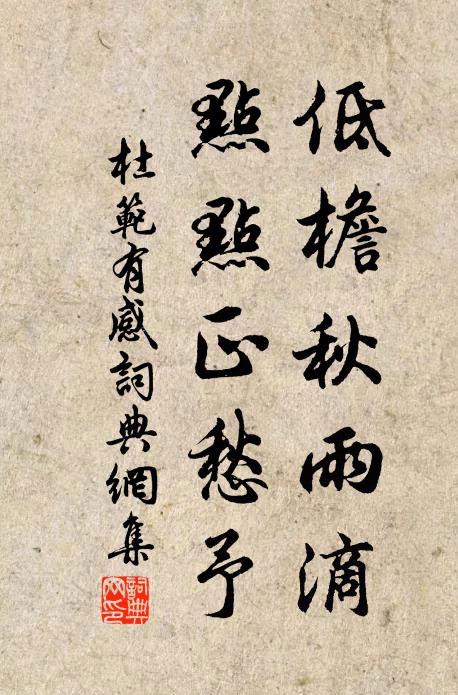 低檐秋雨滴
點點正愁予
杜範有感詞典網集
詞典網印